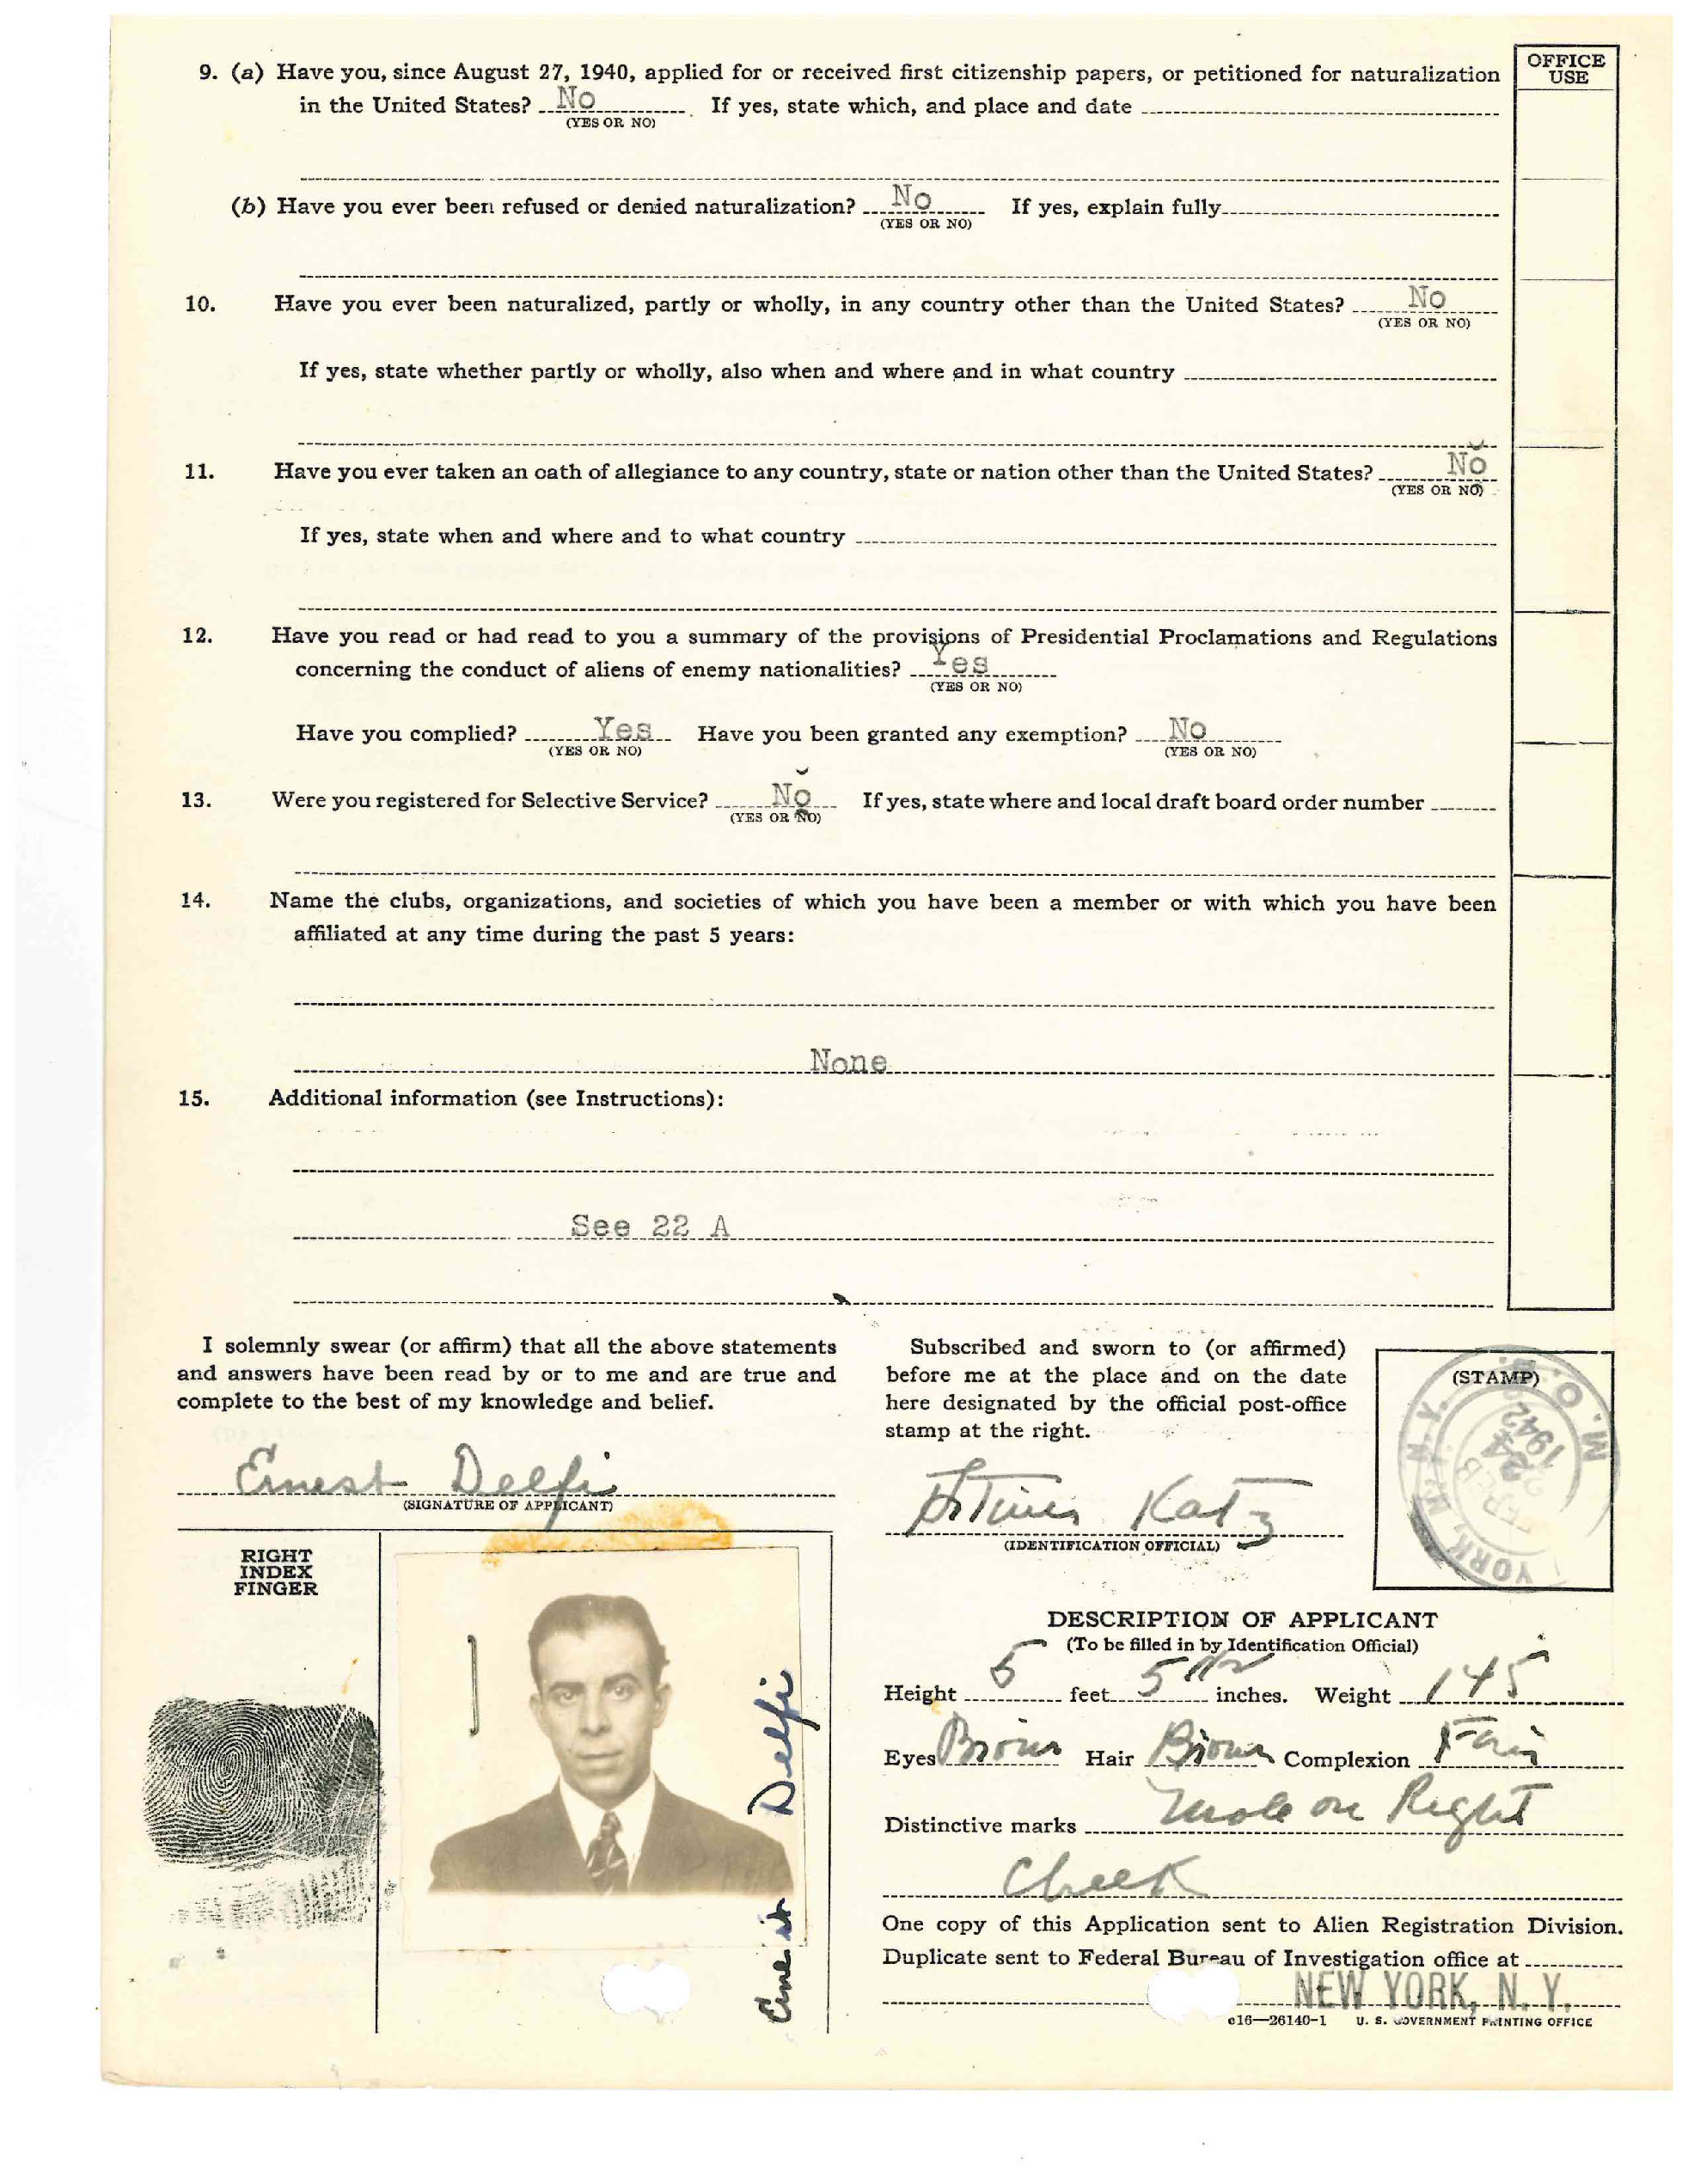 OFFICE
USE
9. (a) Have you, since August 27, 1940, applied for or received first citizenship papers, or petitioned for naturalization
in the United States? No If yes, state which, and place and date
(YES OR NO)
(b) Have you ever been refused or denied naturalization? No If yes, explain fully
(YES OR NO)
10. Have you ever been naturalized, partly or wholly, in any country other than the United States? No
(YES OR NO)
If yes, state whether partly or wholly, also when and where and in what country
11. Have you ever taken an oath of allegiance to any country, state or nation other than the United States? No
(YES OR NO)
If yes, state when and where and to what country
12. Have you read or had read to you a summary of the provisions of Presidential Proclamations and Regulations
concerning the conduct of aliens of enemy nationalities? Yes
(YES OR NO)
Have you complied? Yes Have you been granted any exemption? No
(YES OR NO) (YES OR NO)
13. Were you registered for Selective Service? No If yes, state where and local draft board order number
(YES OR NO)
14. Name the clubs, organizations, and societies of which you have been a member or with which you have been
affiliated at any time during the past 5 years:
None
15. Additional information (see Instructions):
See 22 A
I solemnly swear (or affirm) that all the above statements
and answers have been read by or to me and are true and
complete to the best of my knowledge and belief.
Ernest Delfi
(SIGNATURE OF APPLICANT)
Subscribed and sworn to (or affirmed)
before me at the place and on the date
here designated by the official post-office
stamp at the right.
Katz
(IDENTIFICATION OFFICIAL)
(STAMP)
M. O. B.
FEB 24 1942
YORK, N. Y.
RIGHT
INDEX
FINGER
Ernest Delfi
DESCRIPTION OF APPLICANT
(To be filled in by Identification Official)
Height 5 feet 5 1/2 inches. Weight 145
Eyes Brown Hair Brown Complexion Fair
Distinctive marks Mole on Right
Cheek
One copy of this Application sent to Alien Registration Division.
Duplicate sent to Federal Bureau of Investigation office at
NEW YORK, N. Y.
c16—26140-1 U. S. GOVERNMENT PRINTING OFFICE